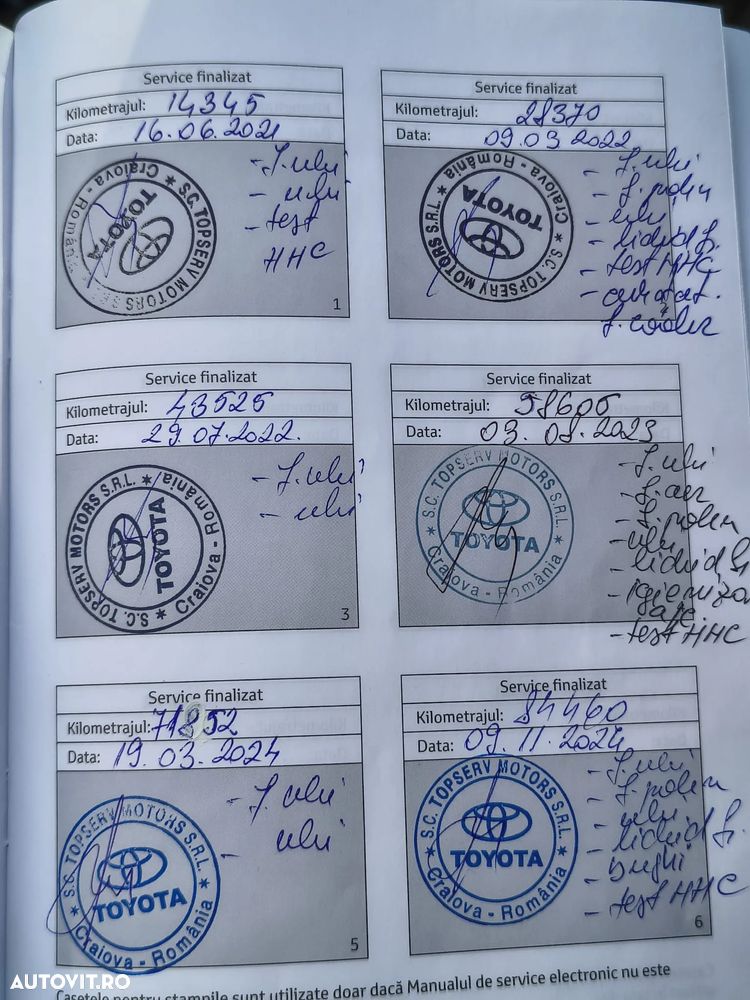 Service finalizat
Kilometrajul: 14345
Data: 16.06.2021
S.C. TOPSERV MOTORS S.R.L.
Craiova - România
TOYOTA
- f. ulei
- ulei
- test
HHC
1
Service finalizat
Kilometrajul: 28370
Data: 09.03 2022
S.C. TOPSERV MOTORS S.R.L.
Craiova - România
TOYOTA
- f. ulei
- f. polen
- ulei
- lichid f.
- test HHC
- curatat.
f. cooler
Service finalizat
Kilometrajul: 43525
Data: 29.07.2022.
S.C. TOPSERV MOTORS S.R.L.
Craiova - România
TOYOTA
- f. ulei
- ulei
3
Service finalizat
Kilometrajul: 58605
Data: 03.08.2023
S.C. TOPSERV MOTORS S.R.L.
Craiova - România
TOYOTA
- f. ulei
- f. aer
- f. polen
- ulei
- lichid f.
- test HHC
Service finalizat
Kilometrajul: 71852
Data: 19.03.2024
S.C. TOPSERV MOTORS S.R.L.
Craiova - România
TOYOTA
- f. ulei
- ulei
5
Service finalizat
Kilometrajul: 84460
Data: 09.11.2024
S.C. TOPSERV MOTORS S.R.L.
Craiova - România
TOYOTA
- f. ulei
- f. polen
- ulei
- lichid f.
- bujii
- test HHC
6
Casetele pentru stampile sunt utilizate doar dacă Manualul de service electronic nu este
AUTOVIT.RO